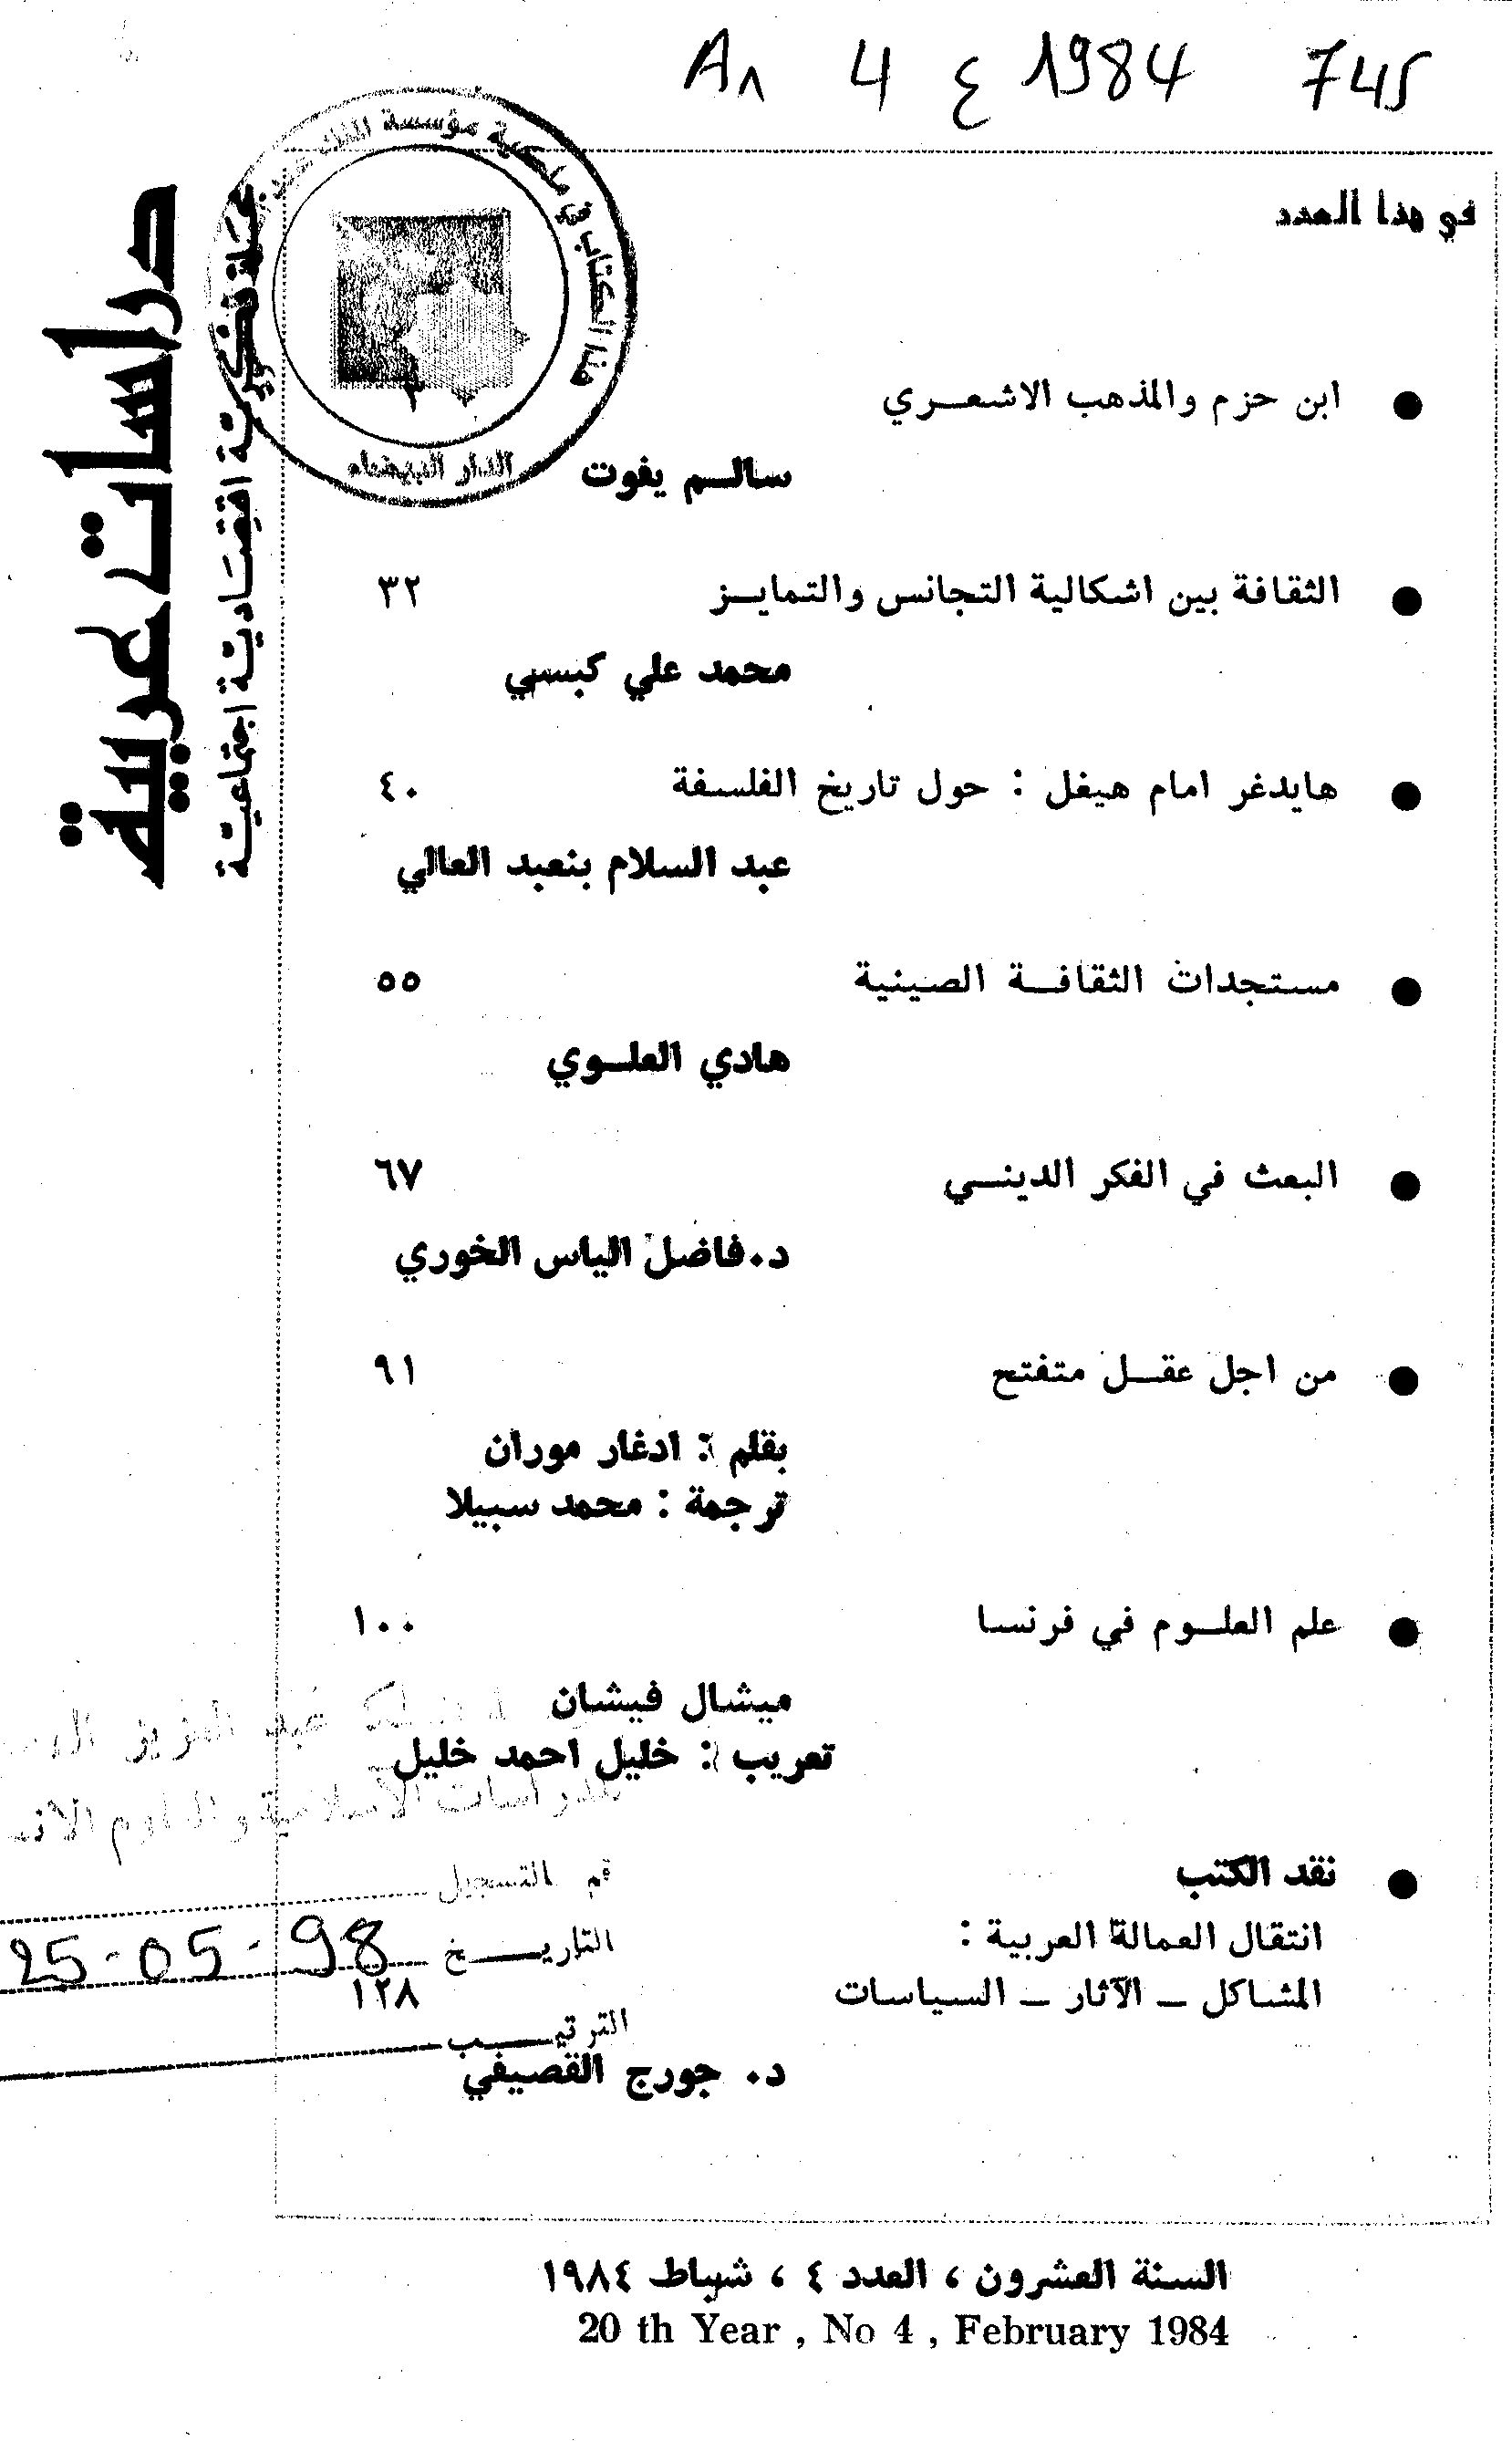 A٨ 4 ع 1984 745
دراسات عربية
مجلة فكرية اقتصادية اجتماعية
هذا الكتاب في ملكية مؤسسة الملك عبد
الدار البيضاء
في هذا العدد
● ابن حزم والمذهب الاشعـري
سالـم يفوت
● الثقافة بين اشكالية التجانس والتمايـز ٣٢
محمد علي كبسي
● هايدغر امام هيغل : حول تاريخ الفلسفة ٤٠
عبد السلام بنعبد العالي
● مستجدات الثقافـة الصينية ٥٥
هادي العلـوي
● البعث في الفكر الدينـي ٦٧
د٠ فاضل الياس الخوري
● من اجل عقـل متفتح ٩١
بقلم : ادغار موران
ترجمة : محمد سبيلا
● علم العلـوم في فرنسا ١٠٠
ميشال فيشان
تعريب : خليل احمد خليل
عبد العزيز
للدراسات الاسلامية والعلوم
● نقد الكتب
قم التسجيل
انتقال العمالة العربية :
التاريـخ 25-05-98
المشاكل ـ الآثار ـ السياسات ١٢٨
الترتيـب
د٠ جورج القصيفي
السنة العشرون ، العدد ٤ ، شباط ١٩٨٤
20 th Year , No 4 , February 1984